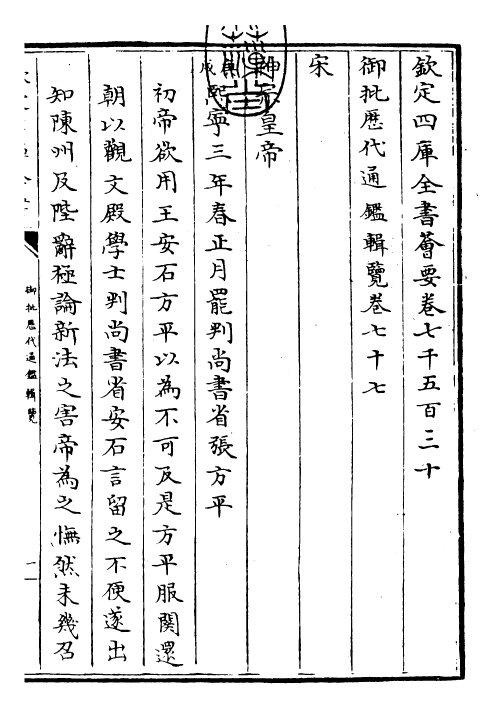 欽定四庫全書薈要卷七千五百三十
御批歷代通鑑輯覽卷七十七
宋
神宗皇帝
庚戌熙寧三年春正月罷判尚書省張方平
初帝欲用王安石方平以為不可及是方平服闋還
朝以觀文殿學士判尚書省安石言留之不便遂出
知陳州及陛辭極論新法之害帝為之憮然未幾召
御批歷代通鑑輯覽
一